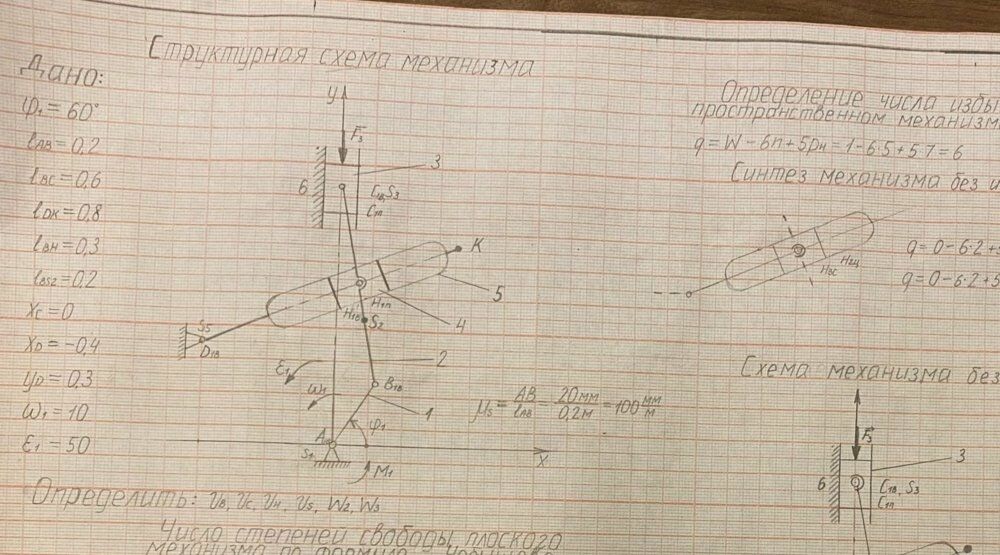 Структурная схема механизма
Дано:
φ₁ = 60°
lAB = 0,2
lBC = 0,6
lDK = 0,8
lBH = 0,3
lBS2 = 0,2
xC = 0
xD = −0,4
yD = 0,3
ω₁ = 10
ε₁ = 50
y
F₃
3
6
C1В, S3
C1п
K
5
H1В
H1п
4
S2
S5
D1В
2
ε₁
ω₁
B1В
1
A
φ₁
S1
M₁
x
μs = AB/lAB = 20мм/0,2м = 100 мм/м
Определить: VB, VC, VH, VS, W2, W3
Число степеней свободы плоского
механизма по формуле
Определение числа избы
пространственном механизм
q = W − 6п + 5pн = 1 − 6·5 + 5·7 = 6
Синтез механизма без и
q = 0 − 6·2 + 5
q = 0 − 6·2 + 5
Схема механизма без
F₃
3
6
C1В, S3
C1п